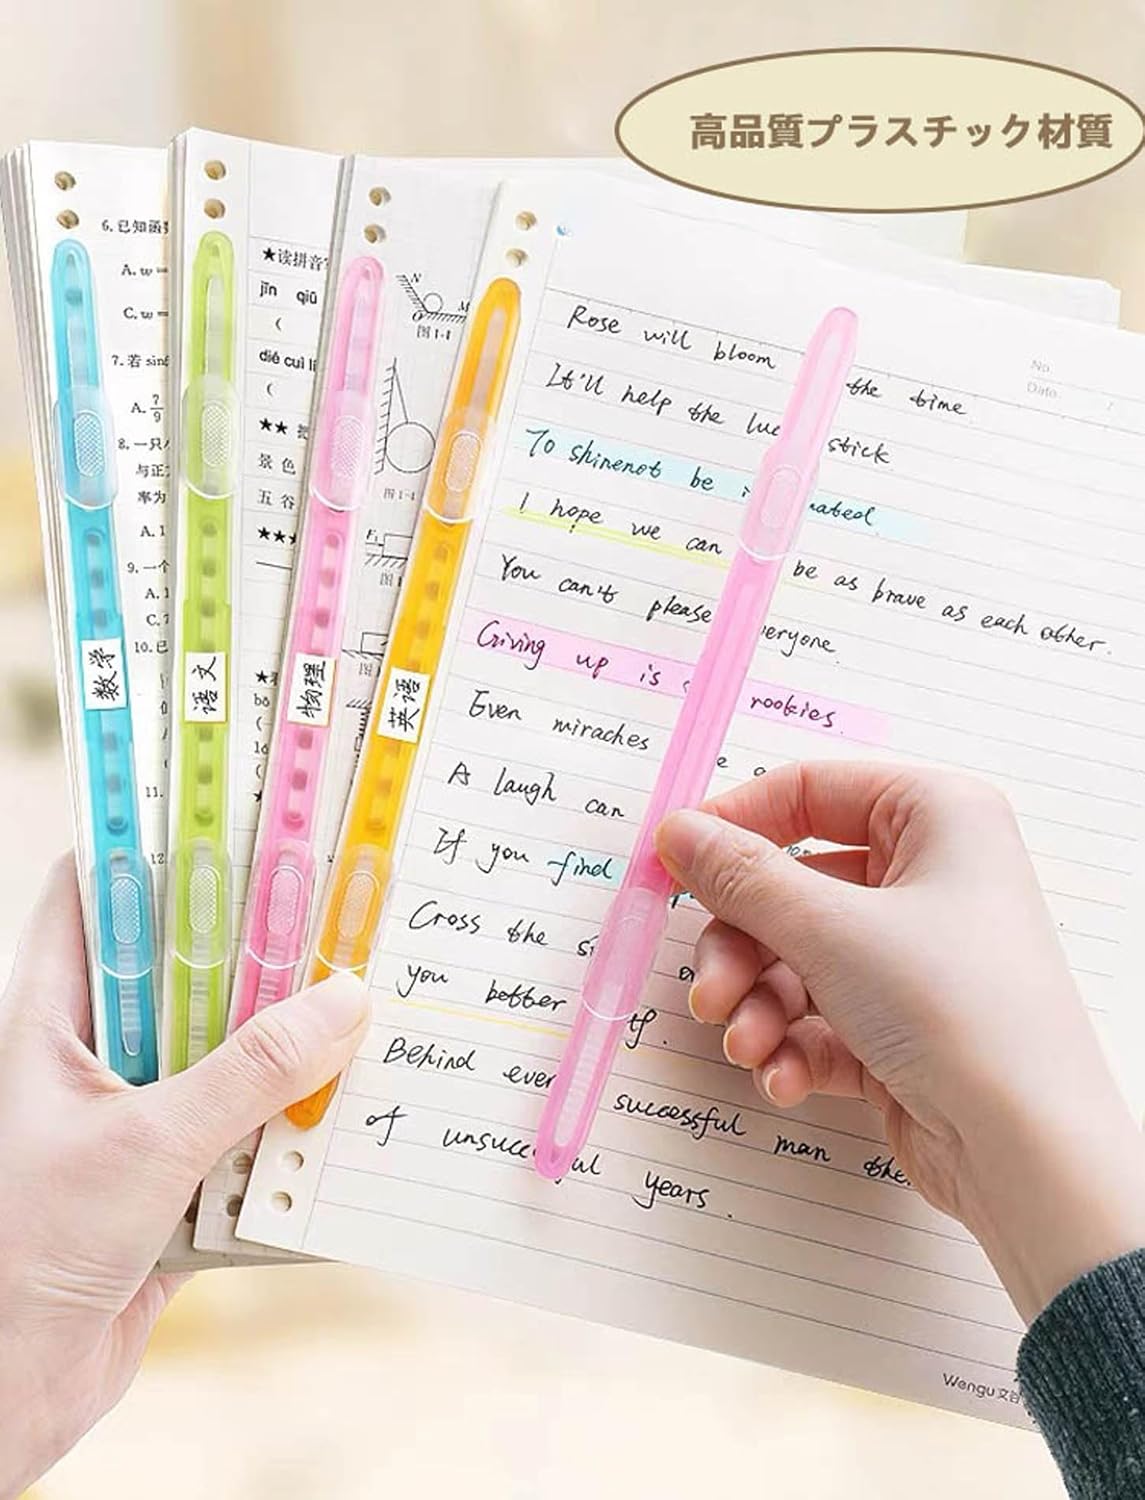 高品質プラスチック材質
6.已知函
A. w =
C. w =
7.若 sin
A. 7/9
8.一只
与正
率为
A. 1
9.一个
A. 1
C. 7
10.已
11.
12.
★读拼音
jīn qiū
(
dié cuì
(
★★
景 色
五 谷
★★★
N
M
O
图 1-1
图 1-1
F₁
数学
语文
物理
英语
No.
Date
Rose will bloom the time
It'll help the luc stick
To shinenot be nated
I hope we can be as brave as each other.
You can't please veryone
Giving up is rookies.
Even miraches
A laugh can
If you find
Cross the
you better
Behind ever successful man
of unsucce ful years.
Wengu 文谷